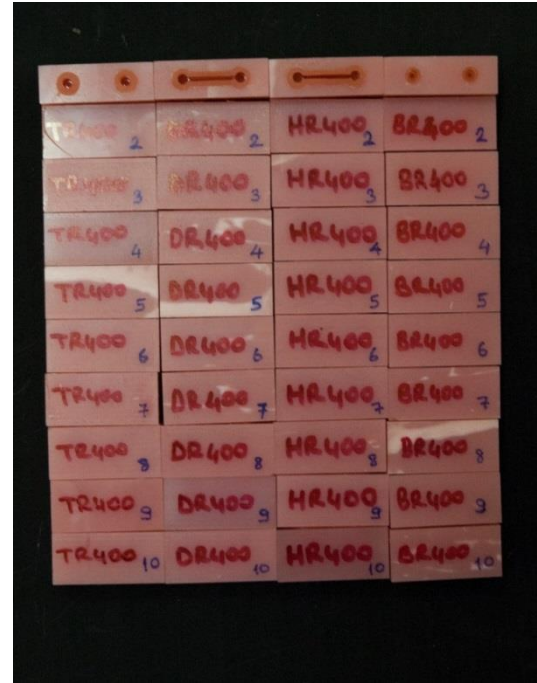 TR400 2 DR400 2 HR400 2 BR400 2
TR400 3 DR400 3 HR400 3 BR400 3
TR400 4 DR400 4 HR400 4 BR400 4
TR400 5 DR400 5 HR400 5 BR400 5
TR400 6 DR400 6 HR400 6 BR400 6
TR400 7 DR400 7 HR400 7 BR400 7
TR400 8 DR400 8 HR400 8 BR400 8
TR400 9 DR400 9 HR400 9 BR400 9
TR400 10 DR400 10 HR400 10 BR400 10